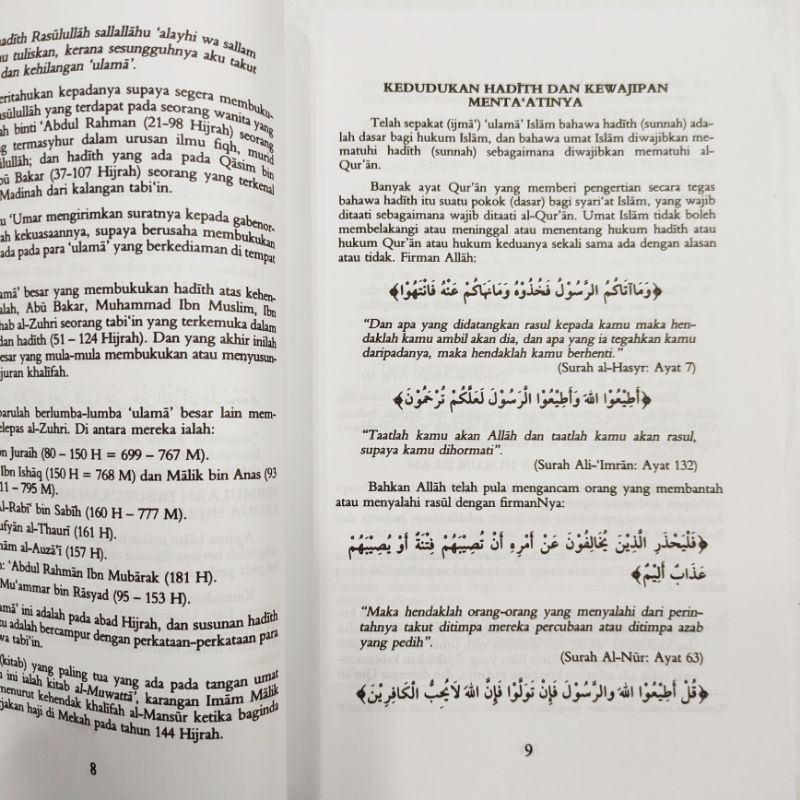 hadīth Rasūlullāh sallallāhu ‘alayhi wa sallam
tuliskan, kerana sesungguhnya aku takut
dan kehilangan ‘ulamā’.
supaya segera membuku-
yang terdapat pada seorang wanita yang
binti ‘Abdul Rahman (21-98 Hijrah) seorang
termasyhur dalam urusan ilmu fiqh, mund
dan hadīth yang ada pada Qāsim bin
Bakar (37-107 Hijrah) seorang yang terkenal
Madinah dari kalangan tabi‘in.
‘Umar mengirimkan suratnya kepada gabenor-
kekuasaannya, supaya berusaha membukukan
pada para ‘ulamā’ yang berkediaman di tempat
besar yang membukukan hadīth atas kehen-
Abū Bakar, Muhammad Ibn Muslim, Ibn
al-Zuhri seorang tabi‘in yang terkemuka dalam
dan hadīth (51 – 124 Hijrah). Dan yang akhir inilah
yang mula-mula membukukan atau menyusun-
khalīfah.
berlumba-lumba ‘ulamā’ besar lain mem-
al-Zuhri. Di antara mereka ialah:
Juraih (80 – 150 H = 699 – 767 M).
Ibn Ishāq (150 H = 768 M) dan Mālik bin Anas (93
– 795 M).
Al-Rabī‘ bin Sabīh (160 H – 777 M).
al-Thaurī (161 H).
al-Auzā‘ī (157 H).
‘Abdul Rahmān Ibn Mubārak (181 H).
Mu‘ammar bin Rāsyad (95 – 153 H).
ini adalah pada abad Hijrah, dan susunan hadīth
adalah bercampur dengan perkataan-perkataan para
tabi‘in.
(kitab) yang paling tua yang ada pada tangan umat
ini ialah kitab al-Muwattā’, karangan Imām Mālik
menurut kehendak khalīfah al-Mansūr ketika baginda
haji di Mekah pada tahun 144 Hijrah.
8
KEDUDUKAN HADĪTH DAN KEWAJIPAN
MENTA‘ATINYA
Telah sepakat (ijmā‘) ‘ulamā’ Islām bahawa hadīth (sunnah) ada-
lah dasar bagi hukum Islām, dan bahawa umat Islām diwajibkan me-
matuhi hadīth (sunnah) sebagaimana diwajibkan mematuhi al-
Qur’ān.
Banyak ayat Qur’ān yang memberi pengertian secara tegas
bahawa hadīth itu suatu pokok (dasar) bagi syari‘at Islām, yang wajib
ditaati sebagaimana wajib ditaati al-Qur’ān. Umat Islām tidak boleh
membelakangi atau meninggal atau menentang hukum hadīth atau
hukum Qur’ān atau hukum keduanya sekali sama ada dengan alasan
atau tidak. Firman Allāh:
﴿وَمَاآتَاكُمُ الرَّسُوْلُ فَخُذُوْهُ وَمَانَهَاكُمْ عَنْهُ فَانْتَهُوْا﴾
“Dan apa yang didatangkan rasul kepada kamu maka hen-
daklah kamu ambil akan dia, dan apa yang ia tegahkan kamu
daripadanya, maka hendaklah kamu berhenti.”
(Surah al-Hasyr: Ayat 7)
﴿أَطِيْعُوْا اللهَ وَأَطِيْعُوْا الرَّسُوْلَ لَعَلَّكُمْ تُرْحَمُوْنَ﴾
“Taatlah kamu akan Allāh dan taatlah kamu akan rasul,
supaya kamu dihormati”.
(Surah Ali-‘Imrān: Ayat 132)
Bahkan Allāh telah pula mengancam orang yang membantah
atau menyalahi rasūl dengan firmanNya:
﴿فَلْيَحْذَرِ الَّذِيْنَ يُخَالِفُوْنَ عَنْ أَمْرِهِ أَنْ تُصِيْبَهُمْ فِتْنَةٌ أَوْ يُصِيْبَهُمْ
عَذَابٌ أَلِيْمٌ﴾
“Maka hendaklah orang-orang yang menyalahi dari perin-
tahnya takut ditimpa mereka percubaan atau ditimpa azab
yang pedih”.
(Surah Al-Nūr: Ayat 63)
﴿قُلْ أَطِيْعُوْا اللهَ والرَّسُوْلَ فَإِنْ تَوَلَّوْا فَإِنَّ اللهَ لاَيُحِبُّ الْكَافِرِيْنَ﴾
9